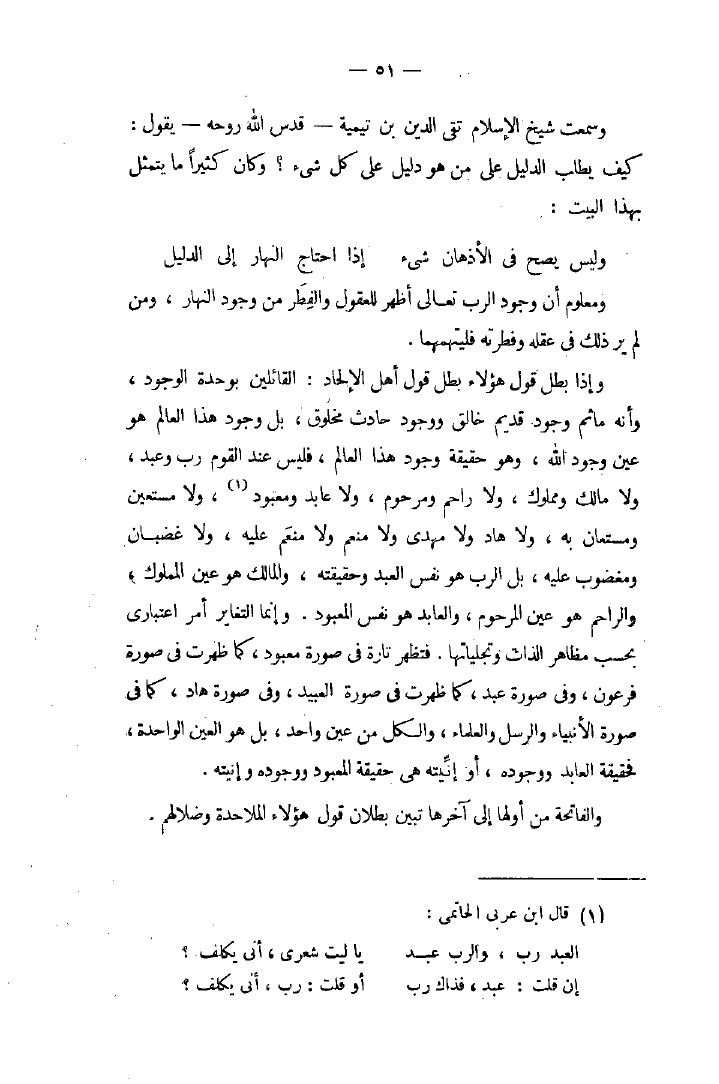 — ٥١ —
وسمعت شيخ الإسلام تقى الدين بن تيمية — قدس الله روحه — يقول :
كيف يطلب الدليل على من هو دليل على كل شىء ؟ وكان كثيراً ما يتمثل
بهذا البيت :
وليس يصح فى الأذهان شىء إذا احتاج النهار إلى الدليل
ومعلوم أن وجود الرب تعالى أظهر للعقول والفِطَر من وجود النهار ، ومن
لم ير ذلك فى عقله وفطرته فليتهمهما .
وإذا بطل قول هؤلاء بطل قول أهل الإلحاد : القائلين بوحدة الوجود ،
وأنه ماثم وجود قديم خالق ووجود حادث مخلوق ، بل وجود هذا العالم هو
عين وجود الله ، وهو حقيقة وجود هذا العالم ، فليس عند القوم رب وعبد ،
ولا مالك ومملوك ، ولا راحم ومرحوم ، ولا عابد ومعبود (١) ، ولا مستعين
ومستعان به ، ولا هاد ولا مهدى ولا منعم ولا منعَم عليه ، ولا غضبان
ومغضوب عليه ، بل الرب هو نفس العبد وحقيقته ، والمالك هو عين المملوك ،
والراحم هو عين المرحوم ، والعابد هو نفس المعبود . وإنما التغاير أمر اعتبارى
بحسب مظاهر الذات وتجلياتها . فتظهر تارة فى صورة معبود ، كما ظهرت فى صورة
فرعون ، وفى صورة عبد ، كما ظهرت فى صورة العبيد ، وفى صورة هاد ، كما فى
صورة الأنبياء والرسل والعلماء ، والكل من عين واحد ، بل هو العين الواحدة ،
فحقيقة العابد ووجوده ، أو إنِّيته هى حقيقة المعبود ووجوده وإنيته .
والفاتحة من أولها إلى آخرها تبين بطلان قول هؤلاء الملاحدة وضلالهم .
(١) قال ابن عربى الحاتمى :
العبد رب ، والرب عبد يا ليت شعرى ، أنى يكلف ؟
إن قلت : عبد ، فذاك رب أو قلت : رب ، أنى يكلف ؟